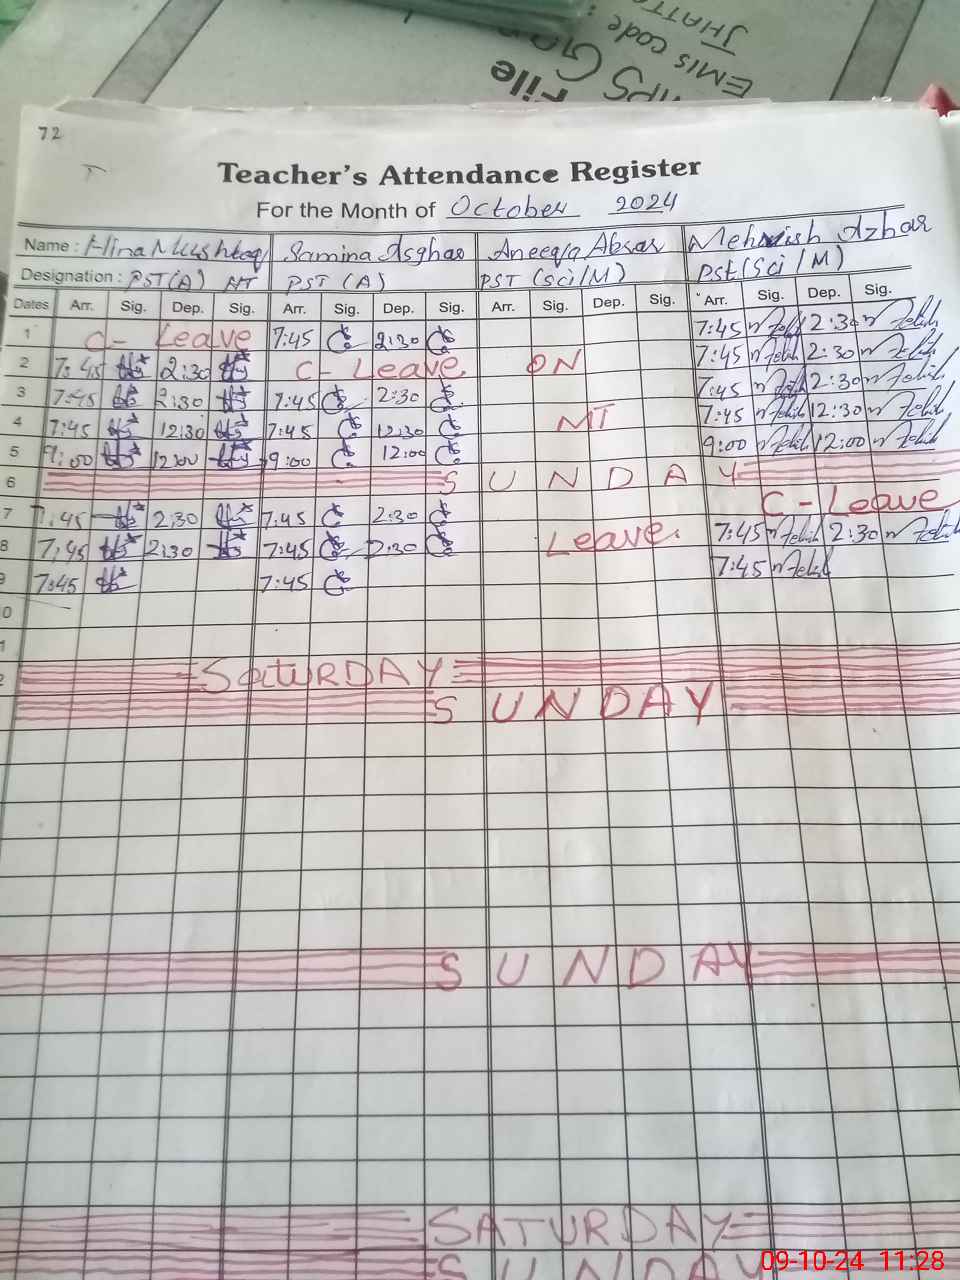 EMIS code :
JHATTA
File
72
Teacher's Attendance Register
For the Month of October 2024
Name : Hina Mushtaq Samina Asghar Aneeqa Absar Mehwish Azhar
Designation : PST(A) PST (A) PST (Sci/M) PSt (Sci/M)
Dates Arr. Sig. Dep. Sig. Arr. Sig. Dep. Sig. Arr. Sig. Dep. Sig. Arr. Sig. Dep. Sig.
1 C- Leave 7:45 2:30 7:45 2:30
2 7:45 2:30 C- Leave. ON 7:45 2:30
3 7:45 2:30 7:45 2:30 7:45 2:30
4 7:45 12:30 7:45 12:30 MT 7:45 12:30
5 9:00 12:00 9:00 12:00 9:00 12:00
6 S U N D A Y
7 7:45 2:30 7:45 2:30 C - Leave
8 7:45 2:30 7:45 2:30 Leave. 7:45 2:30
9 7:45 7:45 7:45
0
1
2 SatURDAY
S U N D A Y
S U N D A Y
SATURDAY
SUNDAY
09-10-24 11:28